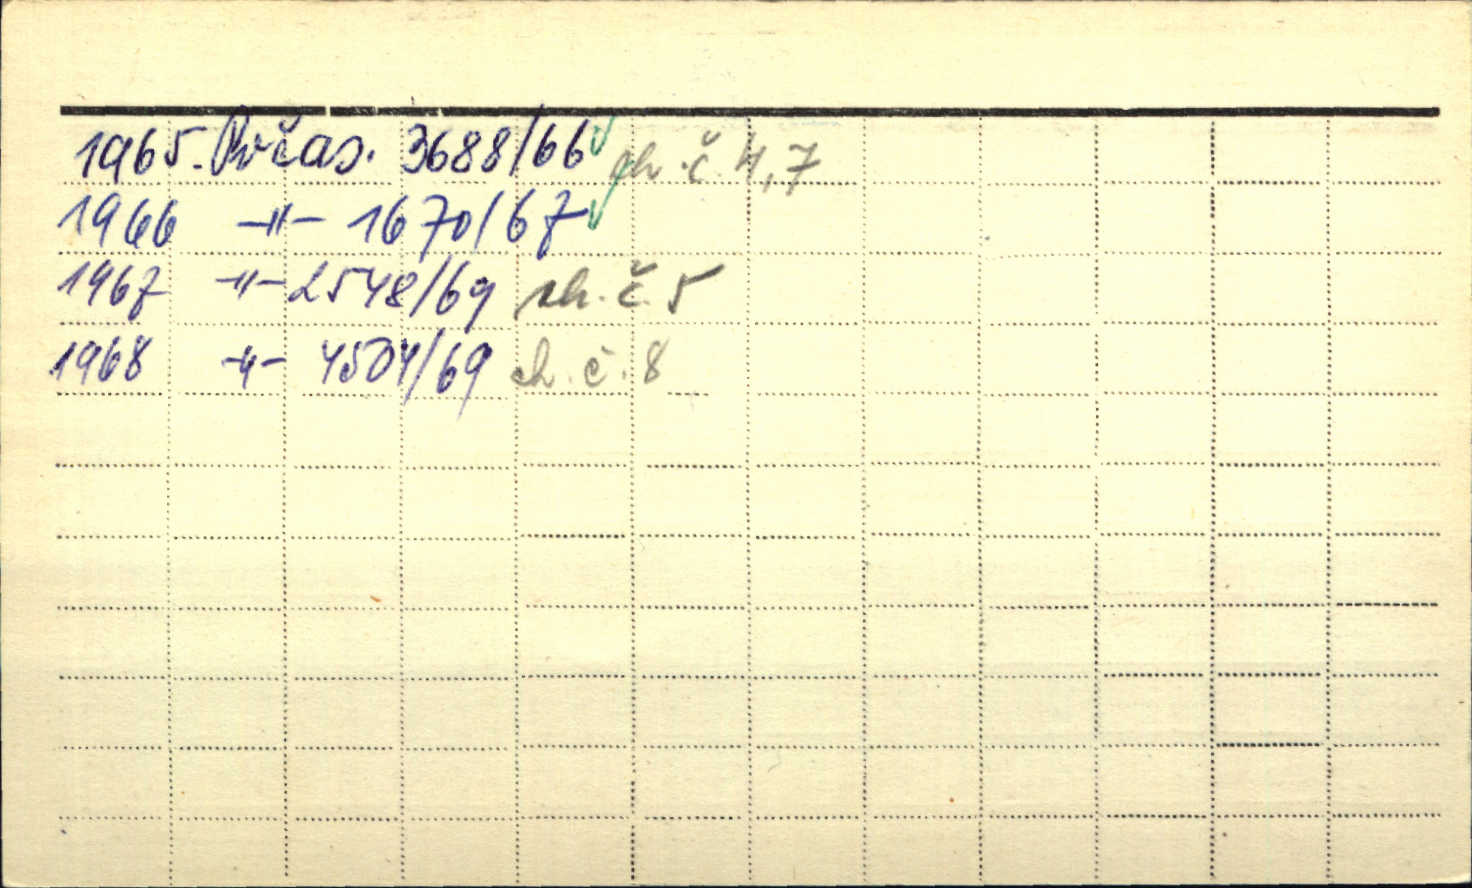 1965. Počas. 3688/66 ch. č. 4,7
1966 -"- 1670/67
1967 -"- 2548/69 ch. č. 5
1968 -"- 4504/69 ch. č. 8